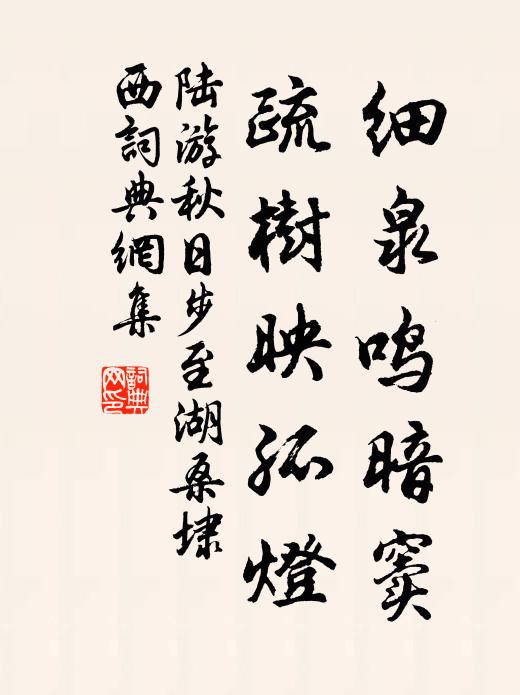 细泉鸣暗窦
疏樹映孤燈
陆游秋日步至湖桑埭
西詞典網集
詞典網印